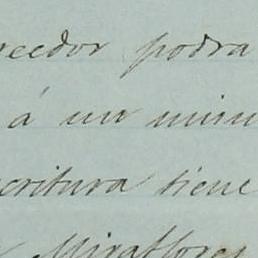 reedor podra
á un mism
critura tiene
Miraflores